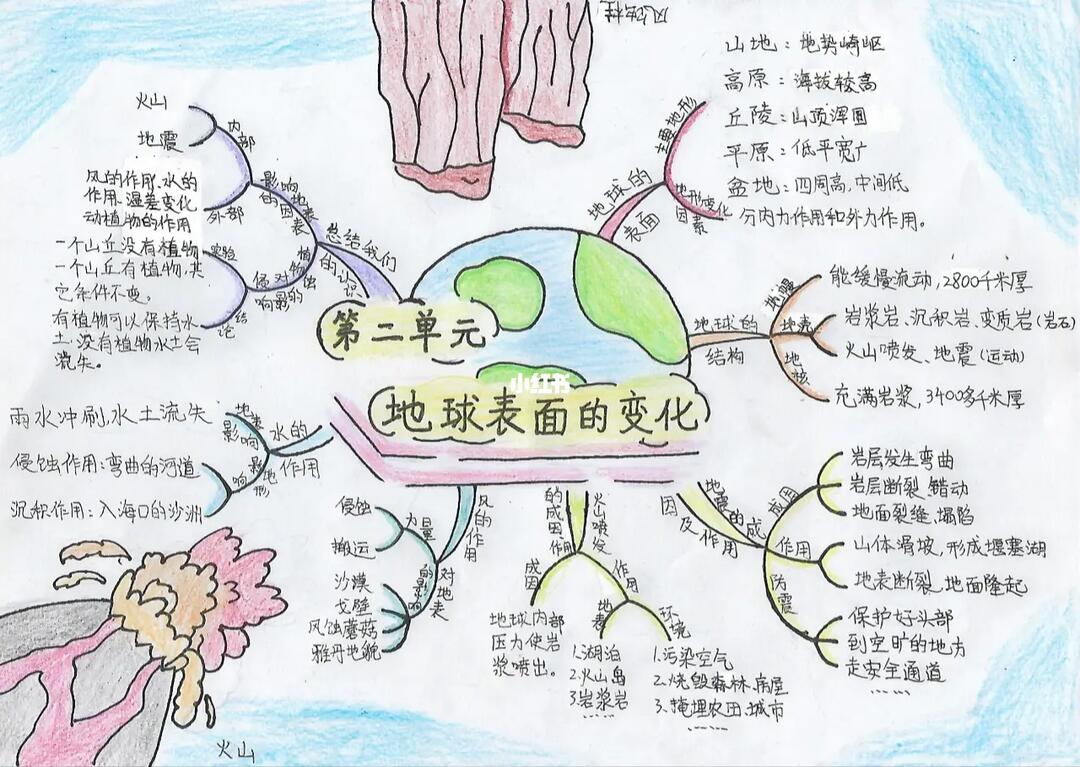 风蚀柱
第二单元
地球表面的变化
小红书
地球的
表面
主要地形
山地：地势崎岖
高原：海拔较高
丘陵：山顶浑圆
平原：低平宽广
盆地：四周高，中间低
地形变化
因素
分内力作用和外力作用。
地球的
结构
地幔
能缓慢流动，2800千米厚
地表
岩浆岩、沉积岩、变质岩(岩石)
火山喷发、地震(运动)
地核
充满岩浆，3400多千米厚
地震的成
因及作用
成因
岩层发生弯曲
岩层断裂、错动
地面裂缝、塌陷
作用
山体滑坡，形成堰塞湖
地表断裂、地面隆起
防震
保护好头部
到空旷的地方
走安全通道
火山喷发
的成因作用
成因
地球内部
压力使岩
浆喷出。
作用
地表
1.湖泊
2.火山岛
3.岩浆岩
环境
1.污染空气
2.烧毁森林、房屋
3.掩埋农田、城市
风的作用
力量
侵蚀
搬运
对地表
的影响
沙漠
戈壁
风蚀蘑菇
雅丹地貌
水的
作用
地表
影响
雨水冲刷，水土流失
影地
响形
侵蚀作用：弯曲的河道
沉积作用：入海口的沙洲
总结我们
的认识
影响地表
的因素
内部
火山
地震
外部
风的作用、水的
作用、温差变化
动植物的作用
植物对侵蚀的影响
实验
一个山丘没有植物
一个山丘有植物，其
它条件不变。
结论
有植物可以保持水
土，没有植物水土会
流失。
火山